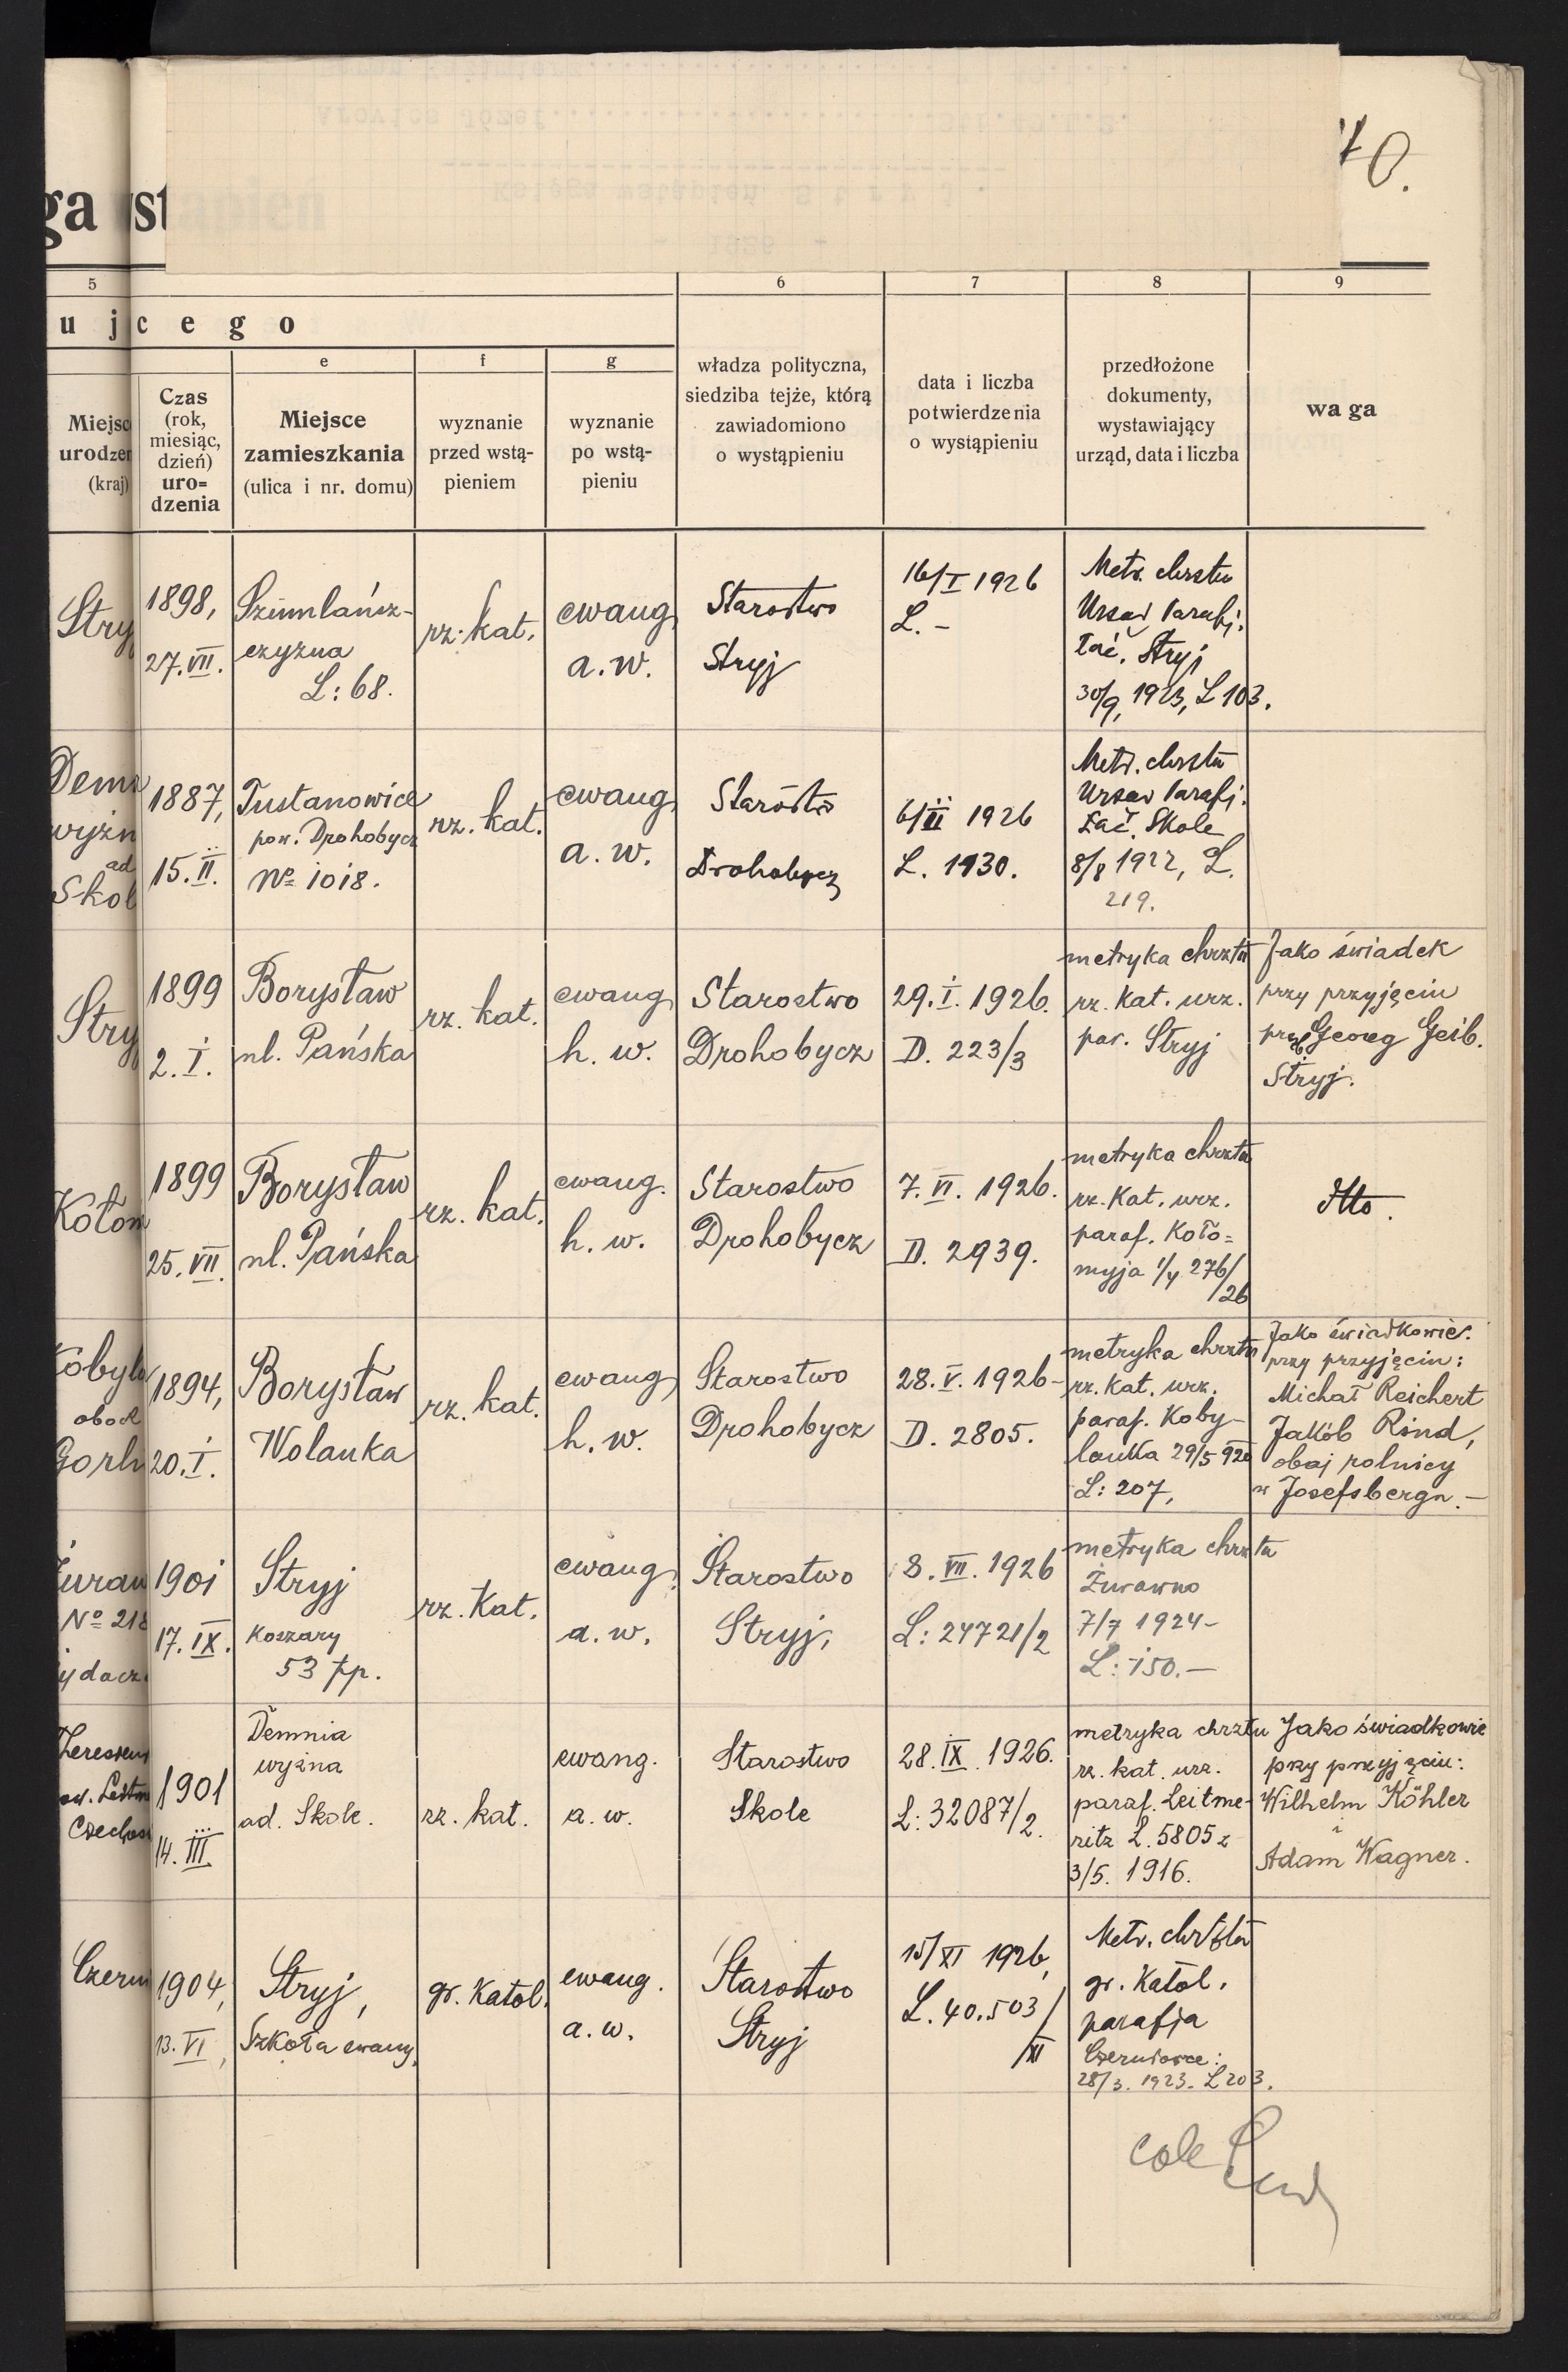 70.
ga wst
5
6
7
8
9
u j c e g o
e
f
g
Miejsc
urodzen
(kraj)
Czas
(rok,
miesiąc,
dzień)
uro=
dzenia
Miejsce
zamieszkania
(ulica i nr. domu)
wyznanie
przed wstą-
pieniem
wyznanie
po wstą-
pieniu
władza polityczna,
siedziba tejże, którą
zawiadomiono
o wystąpieniu
data i liczba
potwierdzenia
o wystąpieniu
przedłożone
dokumenty,
wystawiający
urząd, data i liczba
wa ga
Stry
1898,
27. VII.
Szumlańsz-
czyzna
L: 68.
rz. kat.
ewang.
a. w.
Starostwo
Stryj
16/I 1926
L. –
Metr. chrztu
Urząd Parafj.
łać. Stryj
30/9, 1923, L 103.
Demn
wyżn
ad
Skol
1887,
15. II.
Tustanowice
pow. Drohobycz
No 1018.
rz. kat.
ewang.
a. w.
Starostwo
Drohobycz
6/III 1926
L. 1930.
Metr. chrztu
Urząd Parafj.
łać. Skole
8/8 1922, L.
219.
Stry
1899
2. I.
Borysław
ul. Pańska
rz. kat.
ewang
h. w.
Starostwo
Drohobycz
29. I. 1926.
D. 223/3
metryka chrztu
rz. kat. urz.
par. Stryj
Jako świadek
przy przyjęciu
Georg Geib.
Stryj.
Kołom
1899
25. VII.
Borysław
ul. Pańska
rz. kat.
ewang.
h. w.
Starostwo
Drohobycz
7. VI. 1926.
D. 2939.
metryka chrztu
rz. kat. urz.
paraf. Koło=
myja 1/4 276/
/26
Itto.
Kobyla
obok
Gorli
1894,
20. I.
Borysław
Wolanka
rz. kat.
ewang
h. w.
Starostwo
Drohobycz
28. V. 1926-
D. 2805.
metryka chrztu
rz. kat. urz.
paraf. Koby-
lanka 29/5 920
L: 207,
Jako świadkowie.
przy przyjęciu:
Michał Reichert
Jakób Rind,
obaj rolnicy
w Josefsbergu. –
Żuraw
No 218
ydacz
1901
17. IX.
Stryj
Koszary
53 pp.
rz. Kat.
ewang.
a. w.
Starostwo
Stryj,
8. VII. 1926
L: 24721/2
metryka chrztu
Żurawno
7/7 1924-
L: 150. –
Czechos
1901
14. III.
Demnia
wyżna
ad. Skole.
rz. kat.
ewang.
a. w.
Starostwo
Skole
28. IX. 1926.
L: 32087/2.
metryka chrztu
rz. kat. urz.
paraf. Leitme-
ritz L. 5805 z
3/5. 1916.
Jako świadkowie
przy przyjęciu:
Wilhelm Köhler
i
Adam Wagner.
Czern
1904,
13. VI,
Stryj,
Szkoła ewang.
gr. Katol.
ewang.
a. w.
Starostwo
Stryj
15/XI 1926,
L. 40.503/
/XI
Metr. chrztu
gr. Katol.
parafja
Czerniowce:
28/3. 1923. L 203.